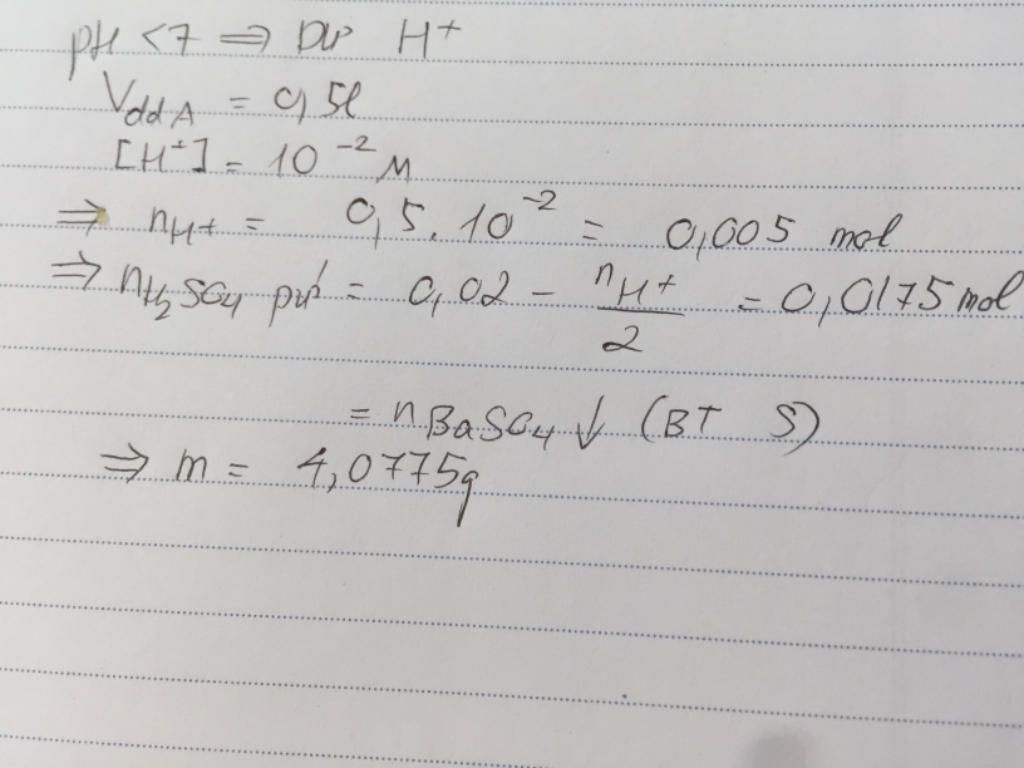 pH < 7 ⇒ Dư H⁺
V_ddA = 0,5l
[H⁺] = 10⁻² M
⇒ n_H⁺ = 0,5.10⁻² = 0,005 mol
⇒ n_H₂SO₄ pư = 0,02 - n_H⁺/2 = 0,0175 mol
= n_BaSO₄ ↓ (BT S)
⇒ m = 4,0775g